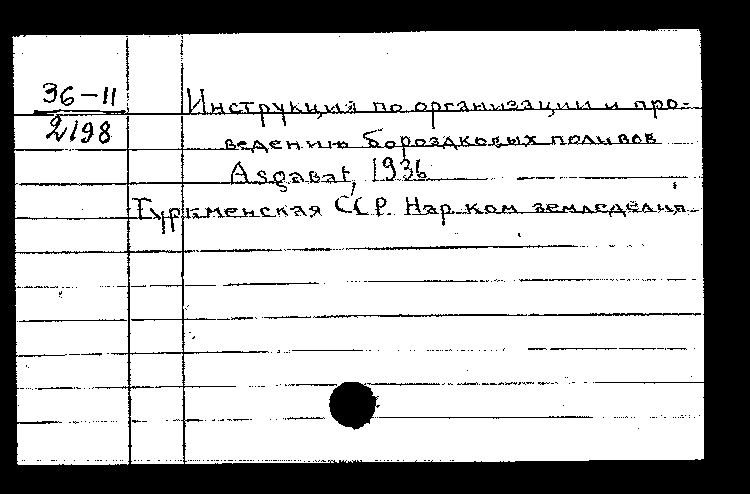 36-11
2198
Инструкция по организации и про-
ведению бороздковых поливов
Asgabat, 1936
Туркменская ССР. Нар. ком. земледелия